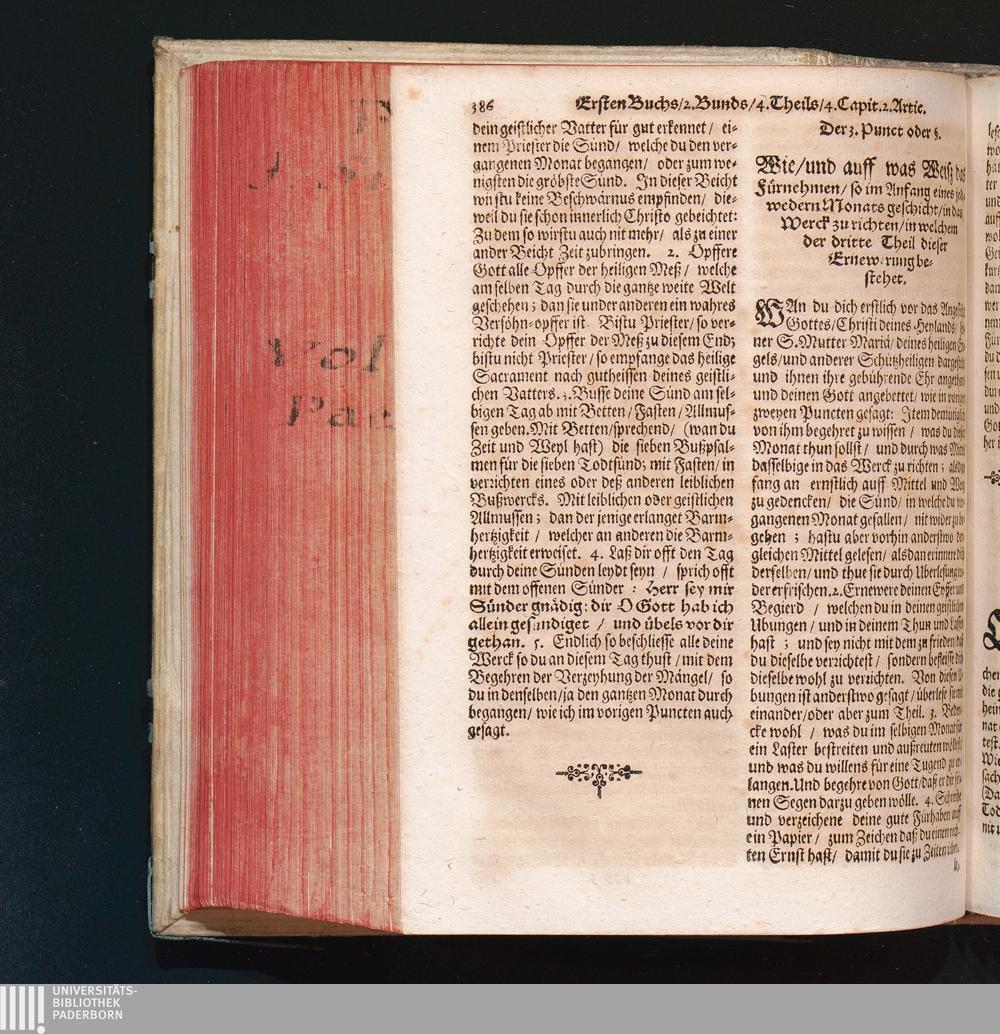 386
Ersten Buchs/2. Bunds/4. Theils/4. Capit. 2. Artic.
dein geistlicher Vatter für gut erkennet/ ei-
nem Priester die Sünd/ welche du den ver-
gangenen Monat begangen/ oder zum we-
nigsten die gröbste Sünd. In dieser Beicht
wirstu keine Beschwärnus empfinden/ die-
weil du sie schon innerlich Christo gebeichtet:
Zu dem so wirstu auch nit mehr/ als zu einer
ander Beicht Zeit zubringen. 2. Opffere
Gott alle Opffer der heiligen Meß/ welche
am selben Tag durch die gantze weite Welt
geschehen; dan sie under anderen ein wahres
Versöhn-opffer ist. Bistu Priester/ so ver-
richte dein Opffer der Meß zu diesem End;
bistu nicht Priester/ so empfange das heilige
Sacrament nach gutheissen deines geistli-
chen Vatters. 3. Busse deine Sünd am sel-
bigen Tag ab mit Betten/ Fasten/ Allmus-
sen geben. Mit Betten/sprechend/ (wan du
Zeit und Weyl hast) die sieben Bußpsal-
men für die sieben Todtsünd; mit Fasten/ in
verzichten eines oder deß anderen leiblichen
Bußwercks. Mit leiblichen oder geistlichen
Allmussen; dan der jenige erlanget Barm-
hertzigkeit / welcher an anderen die Barm-
hertzigkeit erweiset. 4. Laß dir offt den Tag
durch deine Sünden leydt seyn / sprich offt
mit dem offenen Sünder : Herr sey mir
Sünder gnädig: dir O Gott hab ich
allein gesündiget / und übels vor dir
gethan. 5. Endlich so beschliesse alle deine
Werck so du an diesem Tag thust/ mit dem
Begehren der Verzeyhung der Mängel/ so
du in denselben/ja den gantzen Monat durch
begangen/ wie ich im vorigen Puncten auch
gesagt.
Der 3. Punct oder §.
Wie/und auff was Weiß das
Fürnehmen/ so im Anfang eines jed-
wedern Monats geschicht/in das
Werck zu richten/in welchem
der dritte Theil dieser
Ernewerung be-
stehet.
WAn du dich erstlich vor das Angesicht
Gottes/Christi deines Heylands/
ner S. Mutter Mariä/ deines heiligen En-
gels/und anderer Schützheiligen
und ihnen ihre gebührende Ehr angethan
und deinen Gott angebettet/ wie in vorigen
zweyen Puncten gesagt: Item
von ihm begehret zu wissen / was du diesen
Monat thun sollst/ und durch was Mittel
dasselbige in das Werck zu richten; alsdan
fang an ernstlich auff Mittel und Weg
zu gedencken/ die Sünd/ in welche du ver-
gangenen Monat gefallen/ nit wider zu be-
gehen ; hastu aber vorhin anderstwo der-
gleichen Mittel gelesen/ alsdan erinnere dich
derselben/ und thue sie durch Uberlesung wi-
der erfrischen. 2. Ernewere deinen Eyffer und
Begierd / welchen du in deinen geistlichen
Ubungen/ und in deinem Thun und Lassen
hast ; und sey nicht mit dem zu frieden/daß
du dieselbe verzichtest/ sondern befleisse dich
dieselbe wohl zu verzichten. Von diesen U-
bungen ist anderstwo gesagt/ überlese sie mit
einander/oder aber zum Theil. 3. Beden-
cke wohl / was du im selbigen Monat für
ein Laster bestreiten und außreuten wöllest
und was du willens für eine Tugend zu er-
langen. Und begehre von Gott/daß er dir sei-
nen Segen darzu geben wölle. 4. Schreibe
und verzeichene deine gute Fürhaben auff
ein Papier/ zum Zeichen daß du einen rech-
ten Ernst hast/ damit du sie zu Zeiten über-
le-
UNIVERSITÄTS-
BIBLIOTHEK
PADERBORN